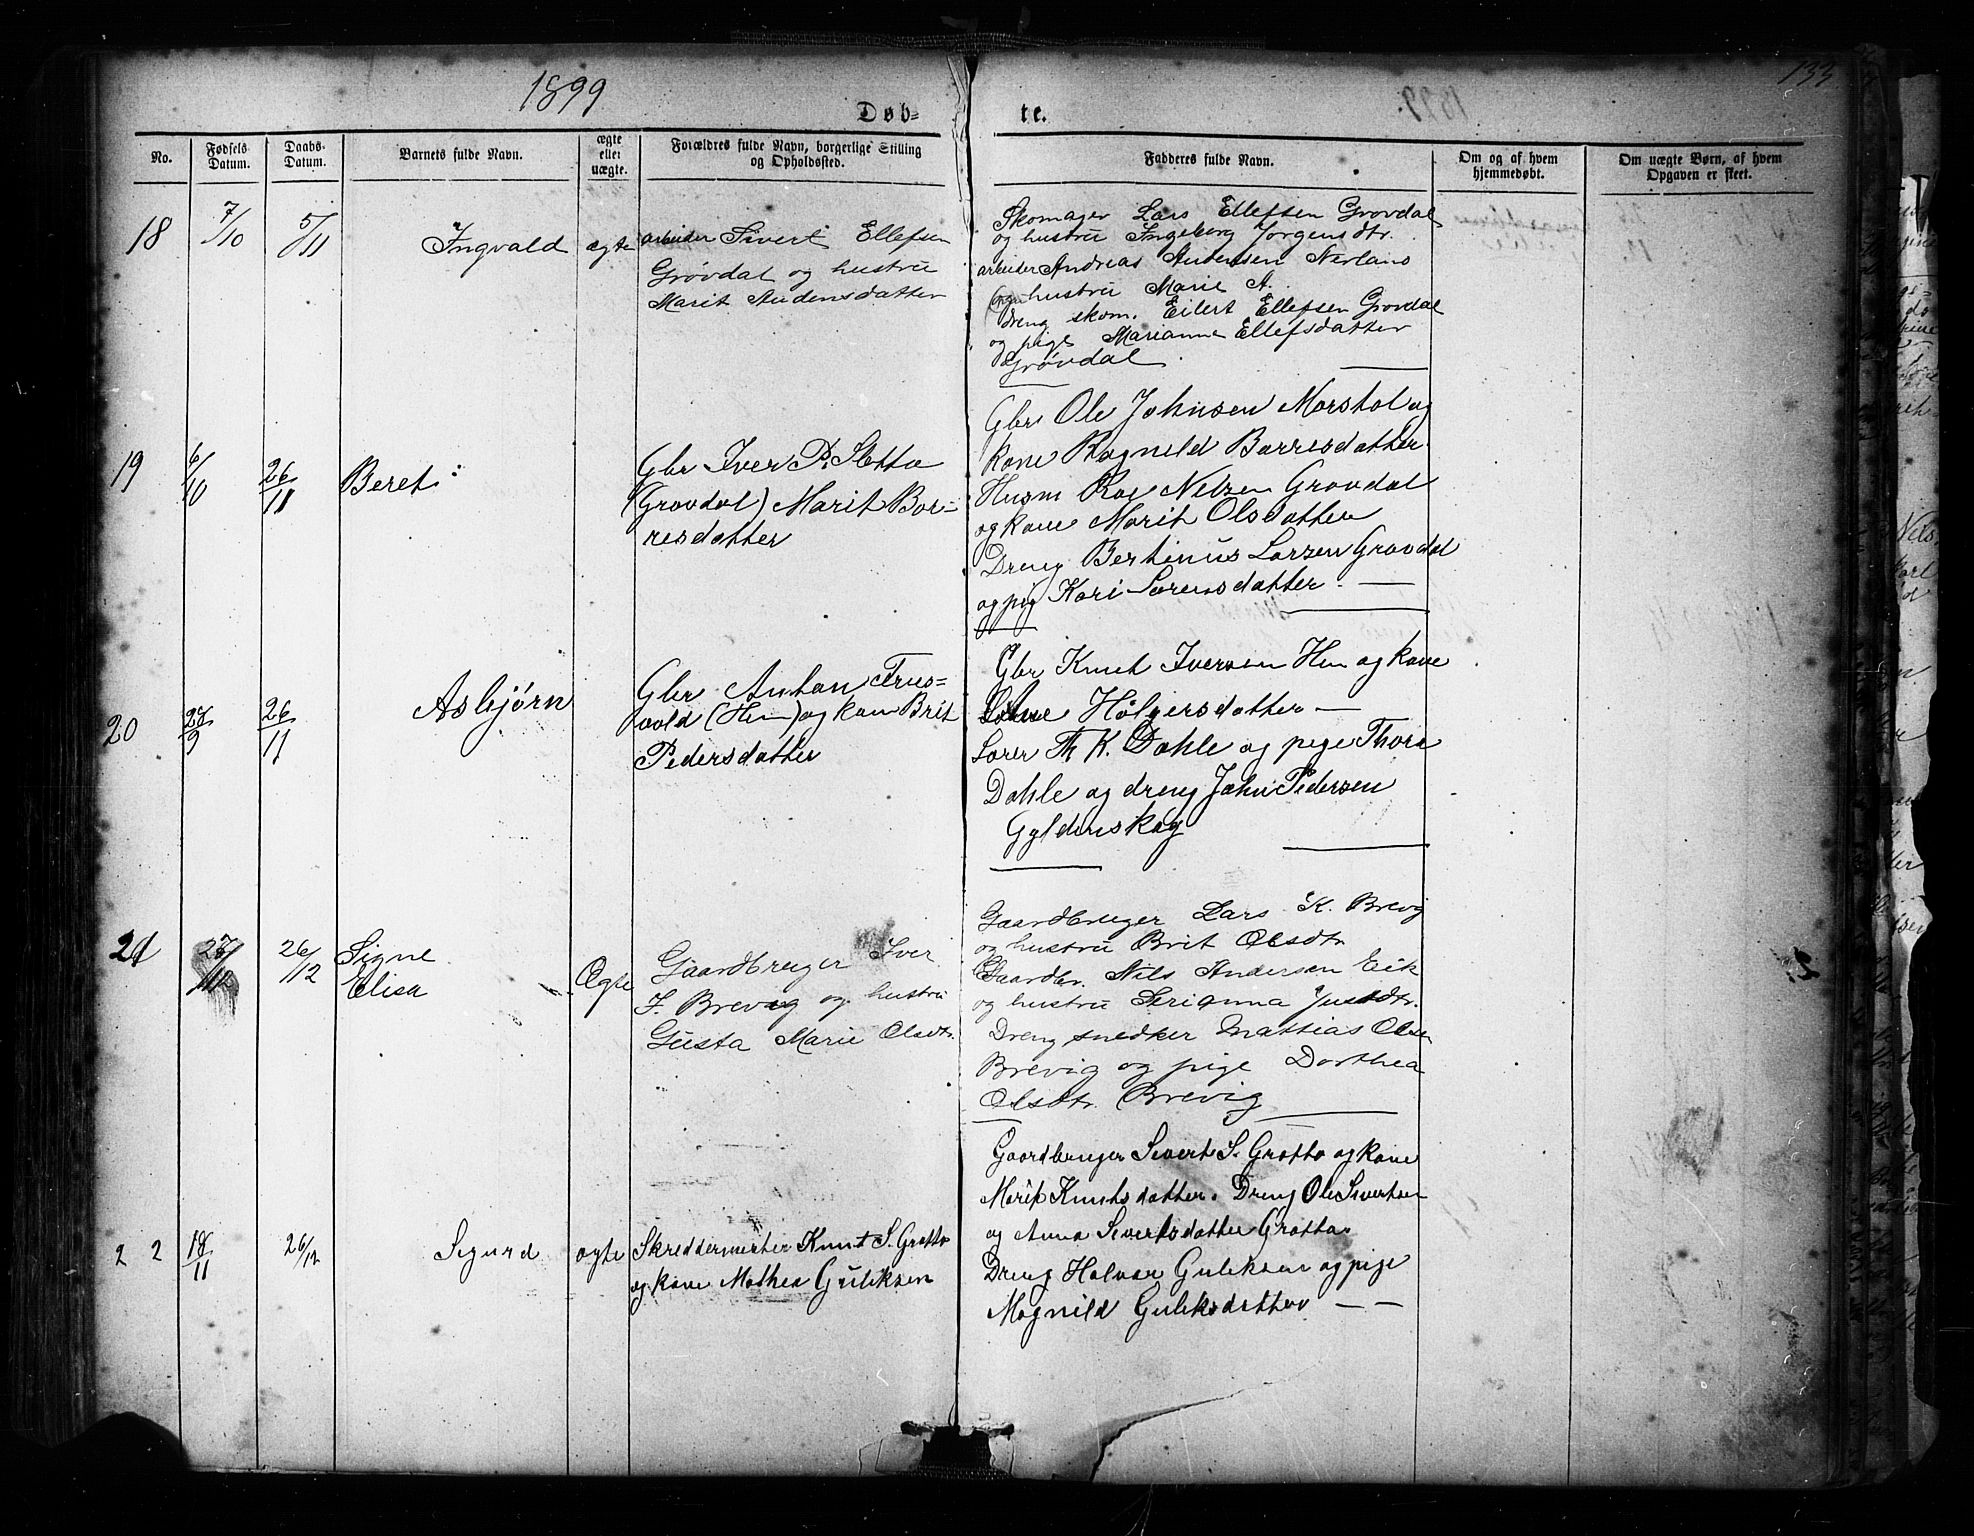 1899
133
Døb-
te.
No.
Fødsels
Datum.
Daabs-
Datum.
Barnets fulde Navn.
ægte
eller
uægte.
Forældres fulde Navn, borgerlige Stilling
og Opholdssted.
Fadderes fulde Navn.
Om og af hvem
hjemmedøbt.
Om uægte Børn, af hvem
Opgaven er skeet.
18
7/10
5/11
Ingvald
ægte
arbeider Sivert Ellefsen
Grøvdal og hustru
Marit Andersdatter
Skomager Lars Ellefsen Grovdal
og hustru Ingeborg Jorgensdtr.
arbeider Andreas Andersen Nerland
og hustru Marie A.
dreng skom. Eilert Ellefsen Grovdal
og pige Marianne Ellefsdatter
Grøvdal.
19
6/10
26/11
Beret
Gbr Iver P. Sletta
(Grovdal) Marit Bor-
resdatter
Gbr Ole Johnsen Morstol og
kone Ragnild Borresdatter
Husm Roe Nelsen Grovdal
og kone Marit Olsdatter
Dreng Bertinus Larsen Grovdal
og pig Kari Sorensdatter
20
27/9
26/11
Asbjørn
Gbr Anton Trus-
vold (Hen) og kone Brit
Pedersdatter
Gbr Knut Iversen Hen og kone
Holgersdatter
Lorer Th K. Dahle og pige Thora
Dahle og dreng John Pedersen
Gyldenskog
21
26/12
Signe
Elisa
Ægte
Gaardbruger Iver
I. Brevig og hustru
Gusta Marie Olsdtr.
Gaardbruger Lars K. Brevig
og hustru Brit Olsdtr
Gaardbr. Nils Andersen Eik
og hustru Serianna Justdtr.
Dreng snedker Mattias Olsen
Brevig og pige Dorthea
Olsdtr. Brevig
22
18/11
26/12
Sigurd
ægte
Skreddermester Knut S. Grotta
og kone Mathea Guliksen
Gaardbruger Sivert S. Grotta og kone
Marit Knutsdatter. Dreng Ole Sivertsen
og Anna Sivertsdatter Grotta
Dreng Halvar Guliksen og pige
Magnild Guliksdatter